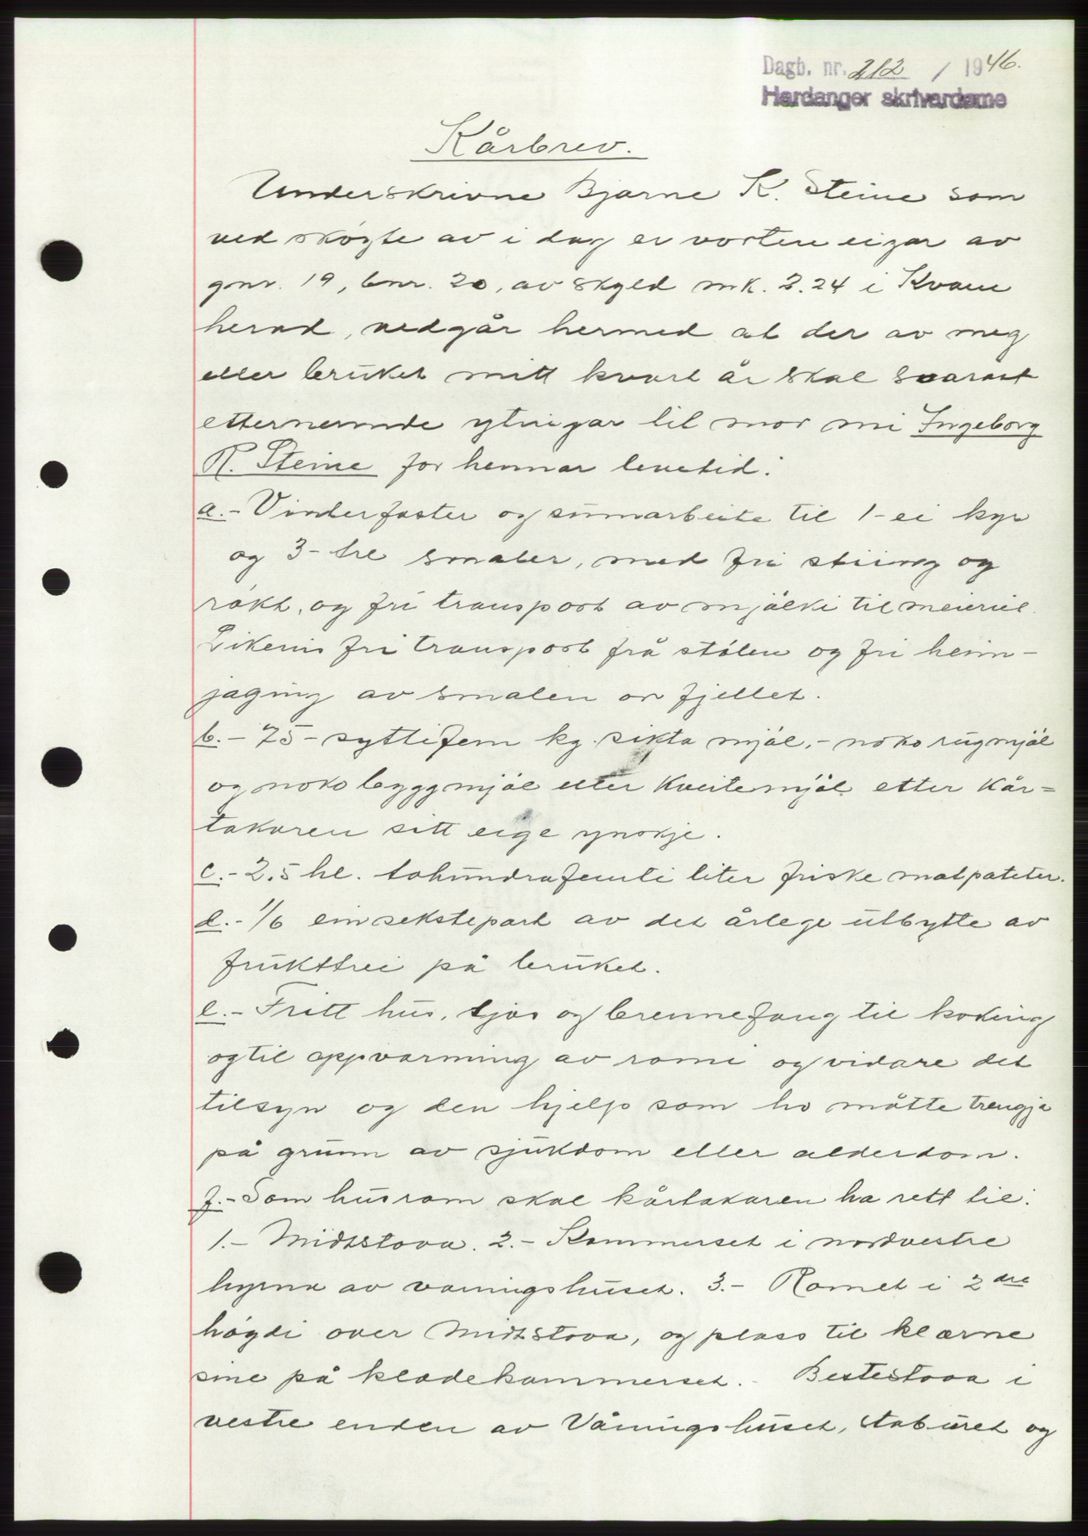 Dagb. nr. 212 / 1946.
Hardanger skrivardøme
Kårbrev.
Underskrivne Bjarne K. Steine som
ved skøyte av i dag er vorten eigar av
gnr. 19, bnr. 20, av skyld mk. 2.24 i Kvam
herad, vedgår hermed at der av meg
eller bruket mitt kvart år skal svarast
etternemnde ytingar til mor mi Ingeborg
R. Steine for hennar levetid:
a.- Vinterfoster og sumarbeite til 1- ei kyr
og 3- tre smaler, med fri stiing og
røkt, og fri transport av mjølki til meieriet.
Likeins fri transport frå stølen og fri heim-
jaging av smalen or fjellet.
b.- 75- syttifem kg. sikta mjøl,- noko rugmjøl
og noko byggmjøl eller kveitemjøl etter kår=
takaren sitt eige ynskje.
c.- 2.5 hl. tohundrafemti liter friske matpoteter.
d.- 1/6 ein sekstepart av det årlege utbytte av
frukttrei på bruket.
e.- Fritt hus, ljos og brennefang til koking
og til oppvarming av romi og vidare det
tilsyn og den hjelp som ho måtte trengja
på grunn av sjukdom eller alderdom.
f.- Som husrom skal kårtakaren ha rett til:
1.- Midtstova. 2.- Kammerset i nordvestre
hyrna av våningshuset. 3.- Romet i 2dre
høgdi over Midtstova, og plass til klærne
sine på klædekammerset.- Bestestova i
vestre enden av Våningshuset, stabúret og